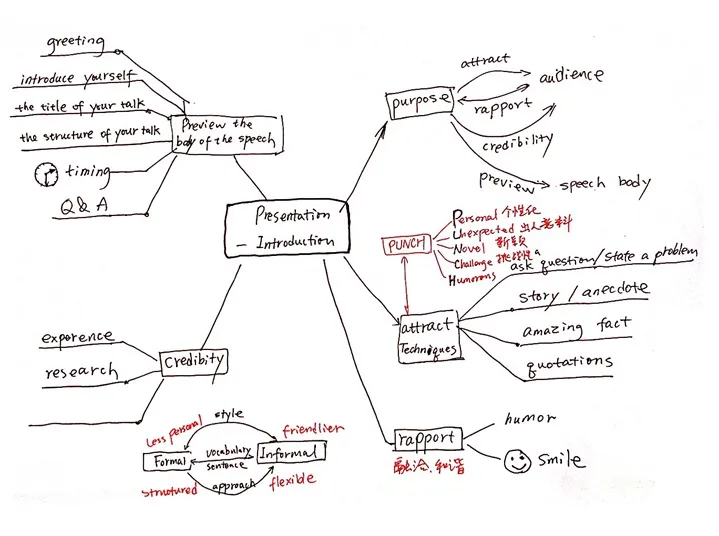 greeting
introduce yourself
the title of your talk
the structure of your talk
timing
Q & A
Preview the
body of the speech
Presentation
— Introduction
purpose
attract
audience
rapport
credibility
preview
speech body
PUNCH
Personal 个性化
Unexpected 出人意料
Novel 新颖
Challenge 挑战性
Humorous
attract
Techniques
ask a question/state a problem
story / anecdote
amazing fact
quotations
rapport
融洽、和谐
humor
smile
Credibity
exporence
research
Less personal
style
friendlier
Formal
vocabulary
sentence
Informal
structured
approach
flexible